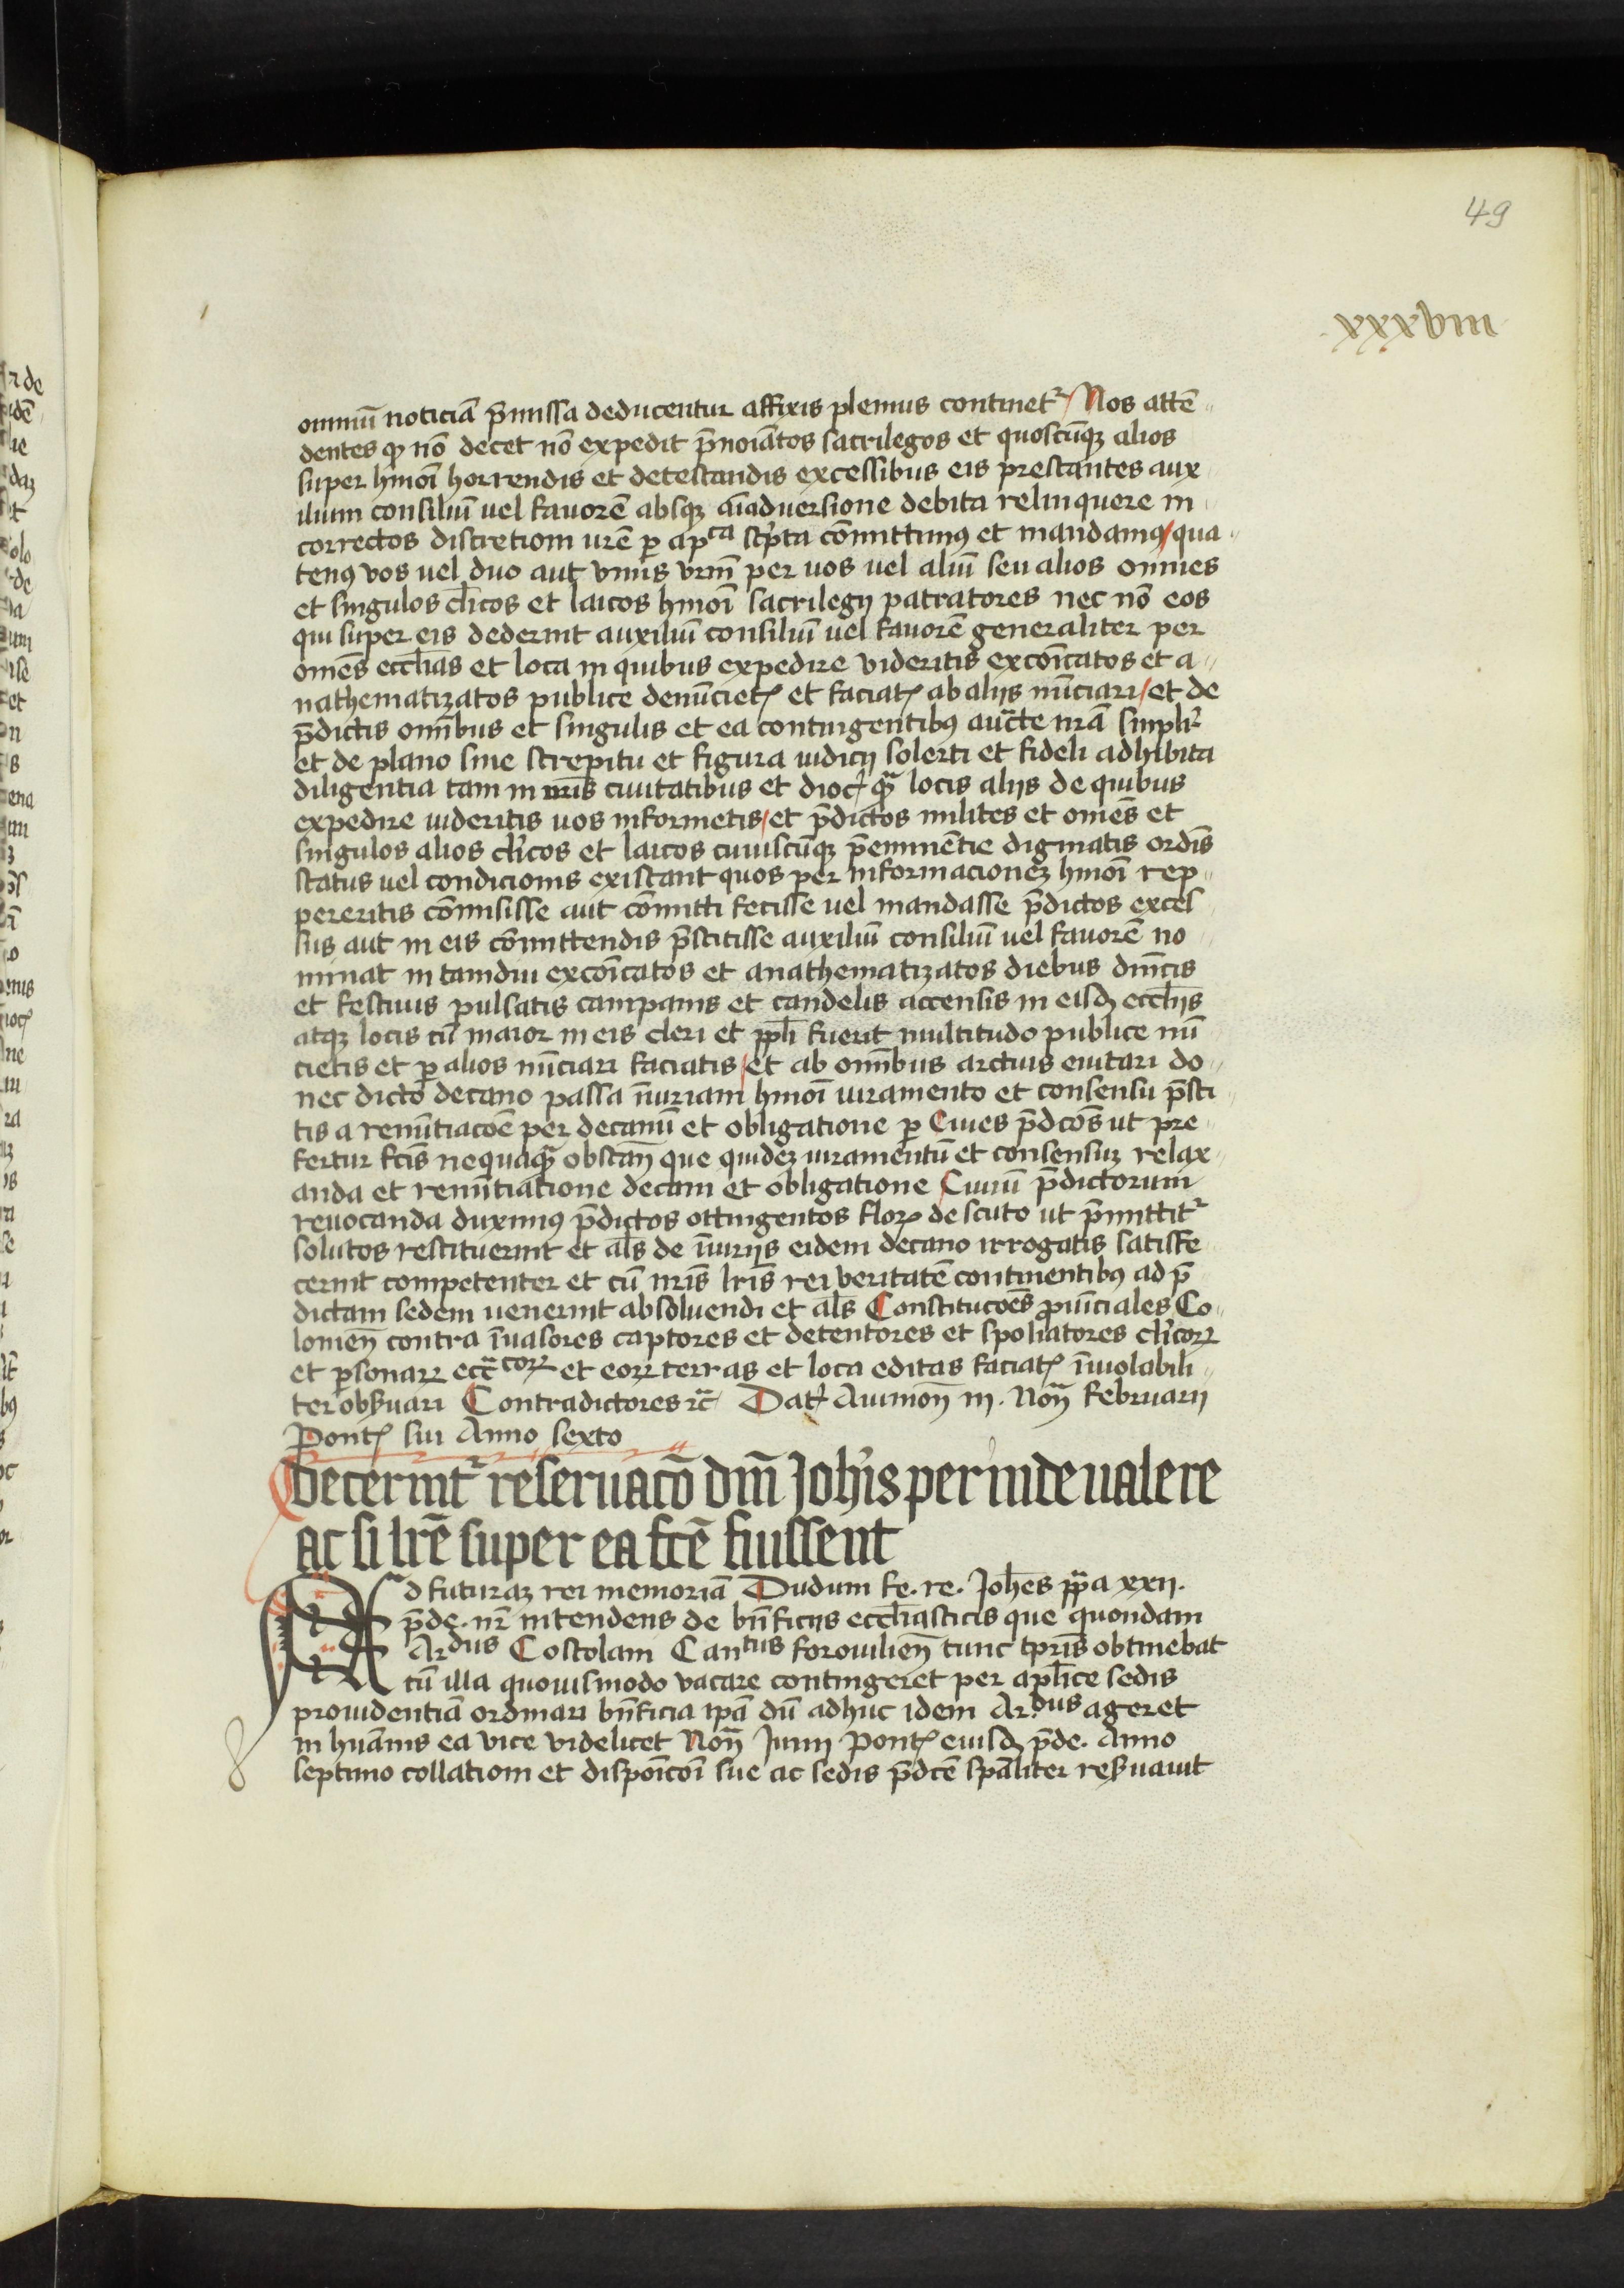 49
xxxviii
omniū noticiā p̄missa deducentur affixis plenius continet² Nos attē
dentes ꝙ nō decet nō expedit p̄noīatos sacrilegos et quoscūqꝫ alios
super hmōi horrendis et detestandis excessibus eis prestantes aux
ilium consiliū uel fauorē absqꝫ aīaduersione debita relinquere in
correctos discretioni ur̄e ꝑ apᶜᵃ scpta cōmittimꝰ et mandamꝰ qua
tenꝰ vos uel duo aut vnus vr̄m per uos uel aliū seu alios omnes
et singulos clīcos et laicos hmōi sacrilegij patratores nec nō eos
qui super eis dederint auxiliū consiliū uel fauorē generaliter per
omēs eccl̄ias et loca in quibus expedire videritis excōīcatos et a
nathematizatos publice denūcietꝭ et faciatꝭ ab alijs nūciari et de
p̄dictis omībus et singulis et ea contingentibꝰ auc̄te nr̄a simplr̄
et de plano sine strepitu et figura iudicij solerti et fideli adhibita
diligentia tam in ur̄is ciuitatibus et dioc̄ ꝙ̄ locis alijs de quibus
expedire uideritis uos informetis et p̄dictos milites et omēs et
singulos alios cl̄icos et laicos cuiuscūqꝫ p̄eminētie dignitatis ordīs
status uel condicionis existant quos per informacionēꝫ hmōi rep
pereritis cōmisisse aut cōmitti fecisse uel mandasse p̄dictos exces
sus aut in eis cōmittendis p̄stitisse auxiliū consiliū uel fauorē no
minat in tamdiu excōīcatos et anathematizatos diebus dn̄icis
et festiuis pulsatis campanis et candelis accensis in eisdꝫ eccl̄ijs
atqꝫ locis cū maior in eis cleri et ppl̄i fuerit multitudo publice nū
cietis et ꝑ alios nūciari faciatis et ab omībus arctius euitari do
nec dicto decano passa īiuriam hmōi iuramento et consensu p̄sti
tis a renūtiacōe per decanū et obligatione ꝑ Ciues p̄dc̄os ut pre
fertur fc̄is nequaꝙ̄ obstan̄ que quidez iuramentū et consensuꝫ relax
anda et renūtiatione decani et obligatione Ciuiū p̄dictorum
reuocanda duximꝰ p̄dictos ottingentos florꝭ de scuto ut p̄mittit²
solutos restituerint et al̄s de īiurijs eidem decano irrogatis satisfe
cerint competenter et cū ur̄is lr̄is rei veritatē continentibꝰ ad p̄
dictam sedem uenerint absoluendi et al̄s Constitucōes ꝓuīciales Co
lonien̄ contra īuasores captores et detentores et spoliatores cl̄icoꝝ
et ꝑsonaꝝ ecc̄ᶜᵒꝝ et eoꝝ terras et loca editas faciatꝭ īuiolabili
ter obẜuari Contradictores ⁊c̄ Dat̄ Auinon̄ iii. Non̄ februarij
Pontꝭ sui Anno sexto
Decernit² reseruacō dn̄i Joh̄is perinde ualere
ac si lr̄e super ea fc̄e fuissent
Ad futuraꝫ rei memoriā Dudum fe. re. Joh̄es pp̄a xxii.
p̄de. nr̄ intendens de bn̄ficijs eccl̄iasticis que quondam
Arᵈᵘˢ Costolani Canᵗᵘˢ foroiulien̄ tunc tpr̄is obtinebat
cū illa quouismodo vacare contingeret per apl̄ice sedis
prouidentiā ordinari bn̄ficia ip̄a dū adhuc idem Ar.ᵈᵘˢ ageret
in hūanis ea vice videlicet Non̄ Junij Pontꝭ eiusdꝫ p̄de. Anno
septimo collationi et dispoīcōi sue ac sedis p̄dc̄e spāliter reẜuauit